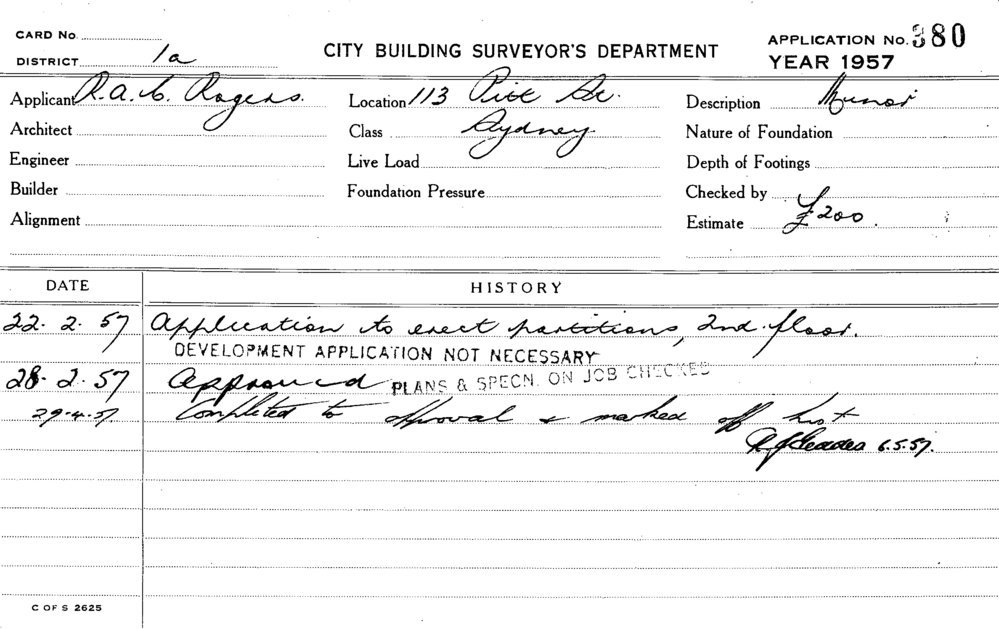 CARD No.
DISTRICT 1a
CITY BUILDING SURVEYOR'S DEPARTMENT
APPLICATION No. 380
YEAR 1957
Applicant R.A.C. Rogers.
Location 113 Pitt St.
Description Minor
Architect
Class Sydney
Nature of Foundation
Engineer
Live Load
Depth of Footings
Builder
Foundation Pressure
Checked by
Alignment
Estimate £200.
DATE HISTORY
22. 2. 57 Application to erect partitions, 2nd floor.
DEVELOPMENT APPLICATION NOT NECESSARY
28. 2. 57 Approved PLANS & SPECN. ON JOB CHECKED
29.4.57. Completed to approval & marked off list
6.5.57.
C OF S 2625